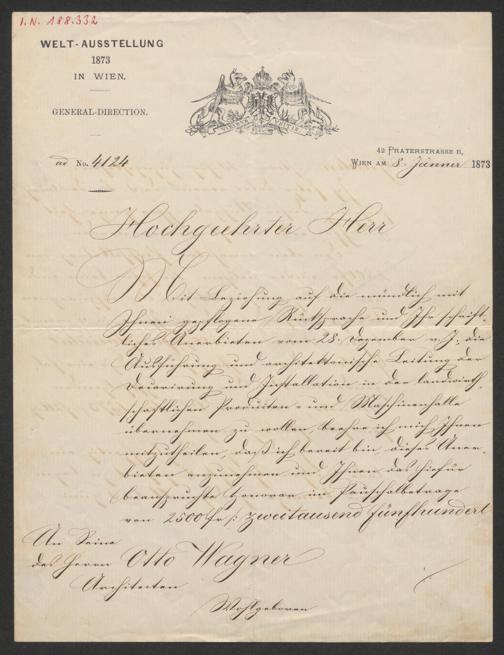 I.N. 188.332
WELT-AUSSTELLUNG
1873
IN WIEN.
GENERAL-DIRECTION.
42 PRATERSTRASSE II,
ad No. 4124
WIEN AM 8. Jänner 1873
Hochgeehrter Herr
Mit Beziehung auf die mündlich mit
Ihnen gepflogene Rücksprache und Ihr schrift-
liches Anerbieten vom 28. Dezember v. J., die
Ausführung und architektonische Leitung der
Decorirung und Installation in der landwirth-
schaftlichen Produkten- und Maschinenhalle
übernehmen zu wollen, beehre ich mich Ihnen
mitzutheilen, daß ich bereit bin dieses Aner-
bieten anzunehmen und Ihnen das hiefür
beanspruchte Honorar im Pauschalbetrage
von 2500 fr /: zweitausend fünfhundert
An Seine
des Herrn Otto Wagner
Architecten
Wohlgeboren